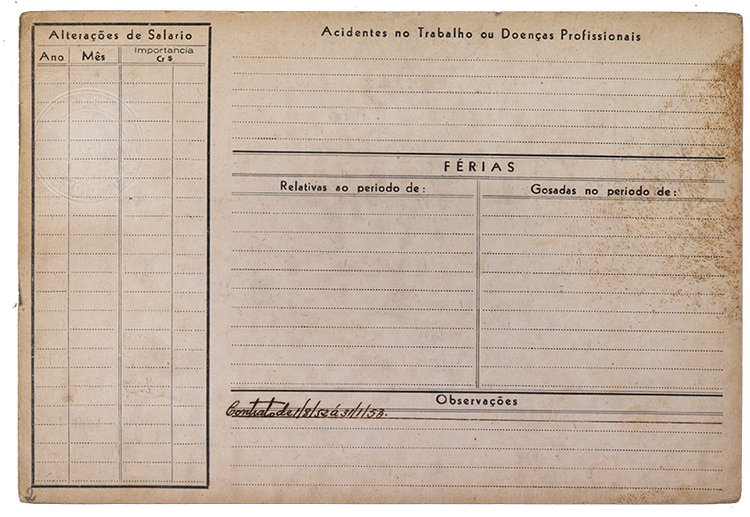 Alterações de Salario
Ano Mês Importancia Cr $
Acidentes no Trabalho ou Doenças Profissionais
FÉRIAS
Relativas ao periodo de: Gosadas no periodo de:
Observações
Contrato de 1/8/52 á 31/1/53.
2